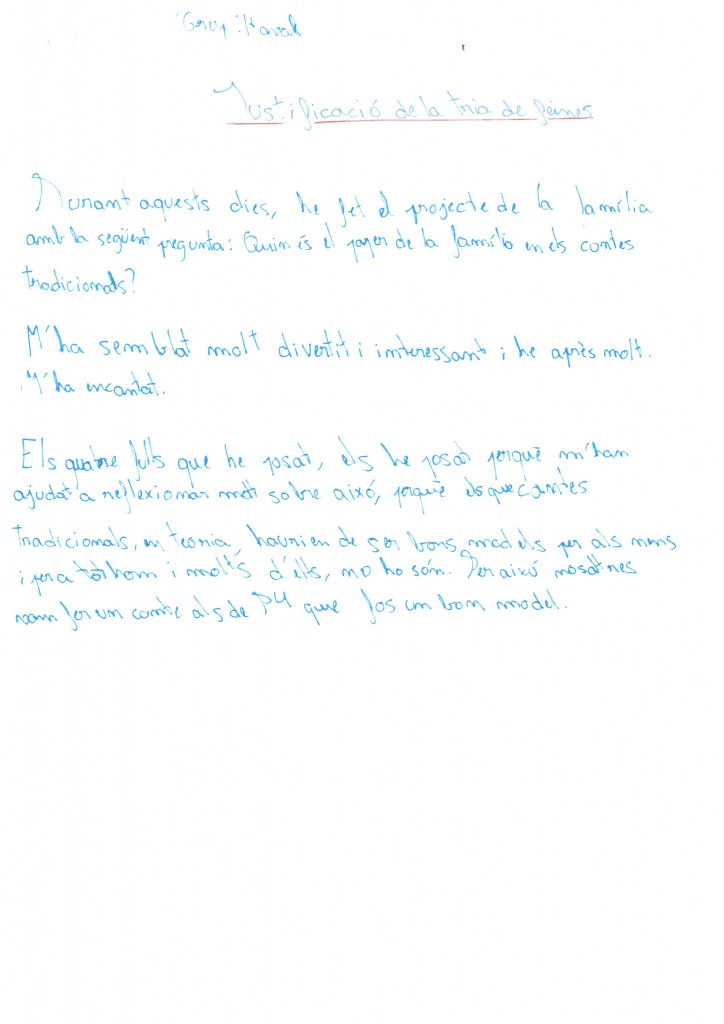 Grup:
Justificació de la tria de feines
Durant aquests dies, he fet el projecte de la família
amb la següent pregunta: Quin és el paper de la família en els contes
tradicionals?
M'ha semblat molt divertit i interessant i he après molt.
M'ha encantat.
Els quatre fulls que he posat, els he posat perquè m'han
ajudat a reflexionar molt sobre això, perquè els que contes
tradicionals, en teoria, haurien de ser bons models per als nens
i per a tothom i molts d'ells, no ho són. Per això nosaltres
vam fer un conte als de P4 que fos un bon model.